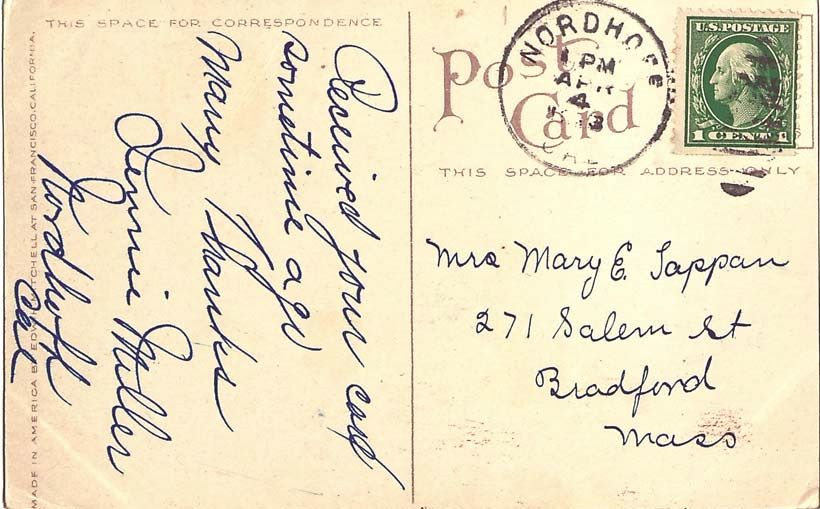 THIS SPACE FOR CORRESPONDENCE
Received your card
sometime ago
Many Thanks
Jennie Miller
Nordhoff
Cal
MADE IN AMERICA BY EDW. H. MITCHELL AT SAN FRANCISCO, CALIFORNIA.
Post
Card
NORDHOFF
1 PM
APR
4
CAL
U.S. POSTAGE
1 CENT 1
THIS SPACE FOR ADDRESS ONLY
Mrs Mary E. Tappan
271 Salem St
Bradford
Mass